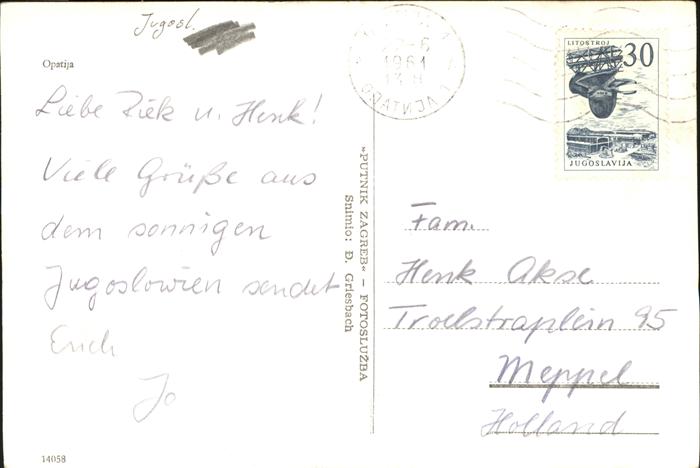 Jugosl.
Opatija
Liebe Ziek u. Henk!
Viele Grüße aus
dem sonnigen
Jugoslowien sendet
Euch
Jo
14058
»PUTNIK ZAGREB« – FOTOSLUŽBA
Snimio: Đ. Griesbach
1961
OPATIJA
LITOSTROJ
30
JUGOSLAVIJA
Fam.
Henk Akse
Troelstraplein 95
Meppel
Holland